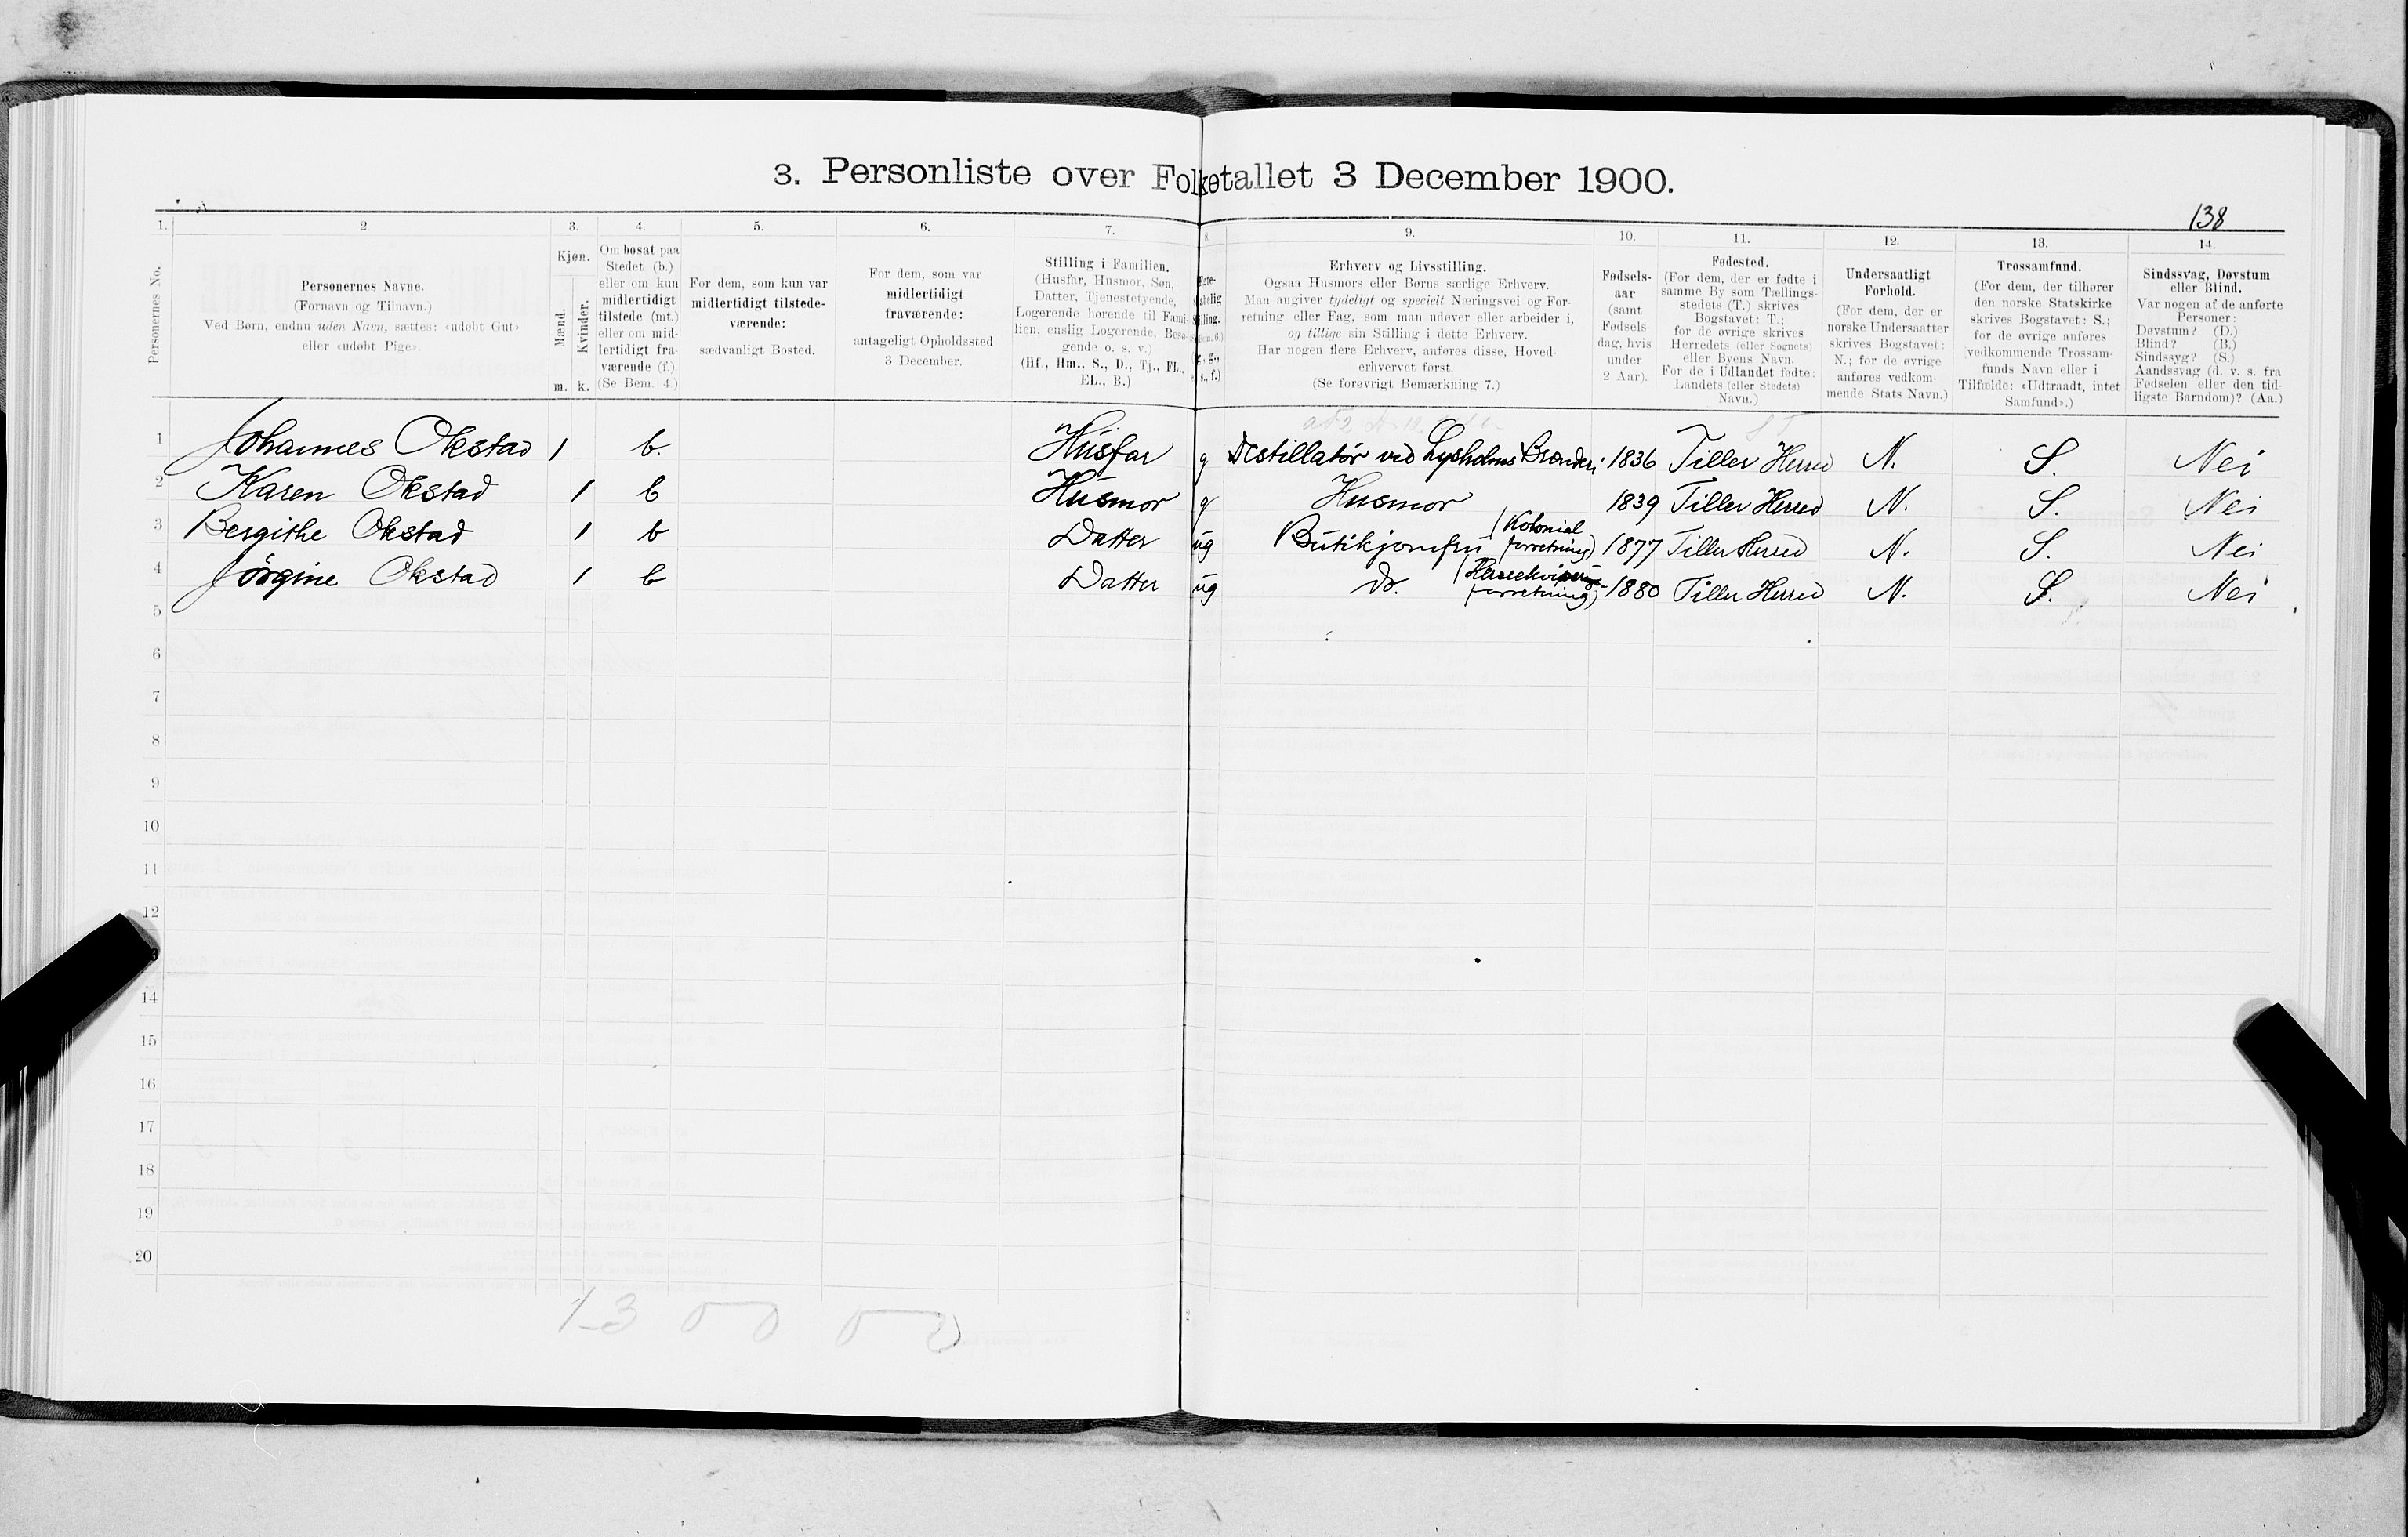 3. Personliste over Folketallet 3 December 1900.
138
1. 2 3. 4. 5. 6. 7. 8. 9. 10. 11. 12. 13. 14.
Personernes No.
Personernes Navne.
(Fornavn og Tilnavn.)
Ved Børn, endnu uden Navn, sættes: «udøbt Gut»
eller «udøbt Pige».
Kjøn.
Mænd.
Kvinder.
m. k.
Om bosat paa
Stedet (b.)
eller om kun
midlertidigt
tilstede (mt.)
eller om mid-
lertidigt fra-
værende (f.).
(Se Bem. 4.)
For dem, som kun var
midlertidigt tilstede-
værende:
sædvanligt Bosted.
For dem, som var
midlertidigt
fraværende:
antageligt Opholdssted
3 December.
Stilling i Familien.
(Husfar, Husmor, Søn,
Datter, Tjenestetyende,
Logerende hørende til Fami-
lien, enslig Logerende, Besø-
gende o. s. v.)
(Hf., Hm., S., D., Tj., FL.,
EL., B.)
Erhverv og Livsstilling.
Ogsaa Husmors eller Børns særlige Erhverv.
Man angiver tydeligt og specielt Næringsvei og For-
retning eller Fag, som man udøver eller arbeider i,
og tillige sin Stilling i dette Erhverv.
Har nogen flere Erhverv, anføres disse, Hoved-
erhvervet først.
(Se forøvrigt Bemærkning 7.)
Fødsels-
aar
(samt
Fødsels-
dag, hvis
under
2 Aar).
Fødested.
(For dem, der er fødte i
samme By som Tællings-
stedets (T.) skrives
Bogstavet: T.;
for de øvrige skrives
Herredets (eller Sognets)
eller Byens Navn.
For de i Udlandet fødte:
Landets (eller Stedets)
Navn.)
Undersaatligt
Forhold.
(For dem, der er
norske Undersaatter
skrives Bogstavet:
N.; for de øvrige
anføres vedkom-
mende Stats Navn.)
Trossamfund.
(For dem, der tilhører
den norske Statskirke
skrives Bogstavet: S.;
for de øvrige anføres
vedkommende Trossam-
funds Navn eller i
Tilfælde: «Udtraadt, intet
Samfund».)
Sindssvag, Døvstum
eller Blind.
Var nogen af de anførte
Personer:
Døvstum? (D.)
Blind? (B.)
Sindssyg? (S.)
Aandssvag (d. v. s. fra
Fødselen eller den tid-
ligste Barndom)? (Aa.)
1 Johannes Okstad 1 b. Husfar g Destillatør ved Lysholms Brænderi 1836 Tiller Herred N. S. Nei
2 Karen Okstad 1 b Husmor g Husmor 1839 Tiller Herred N. S. Nei
3 Bergithe Okstad 1 b Datter ug Butikjomfru (Kolonial forretning) 1877 Tiller Herred N. S. Nei
4 Jörgine Okstad 1 b Datter ug Do. forretning) 1880 Tiller Herred N. S. Nei
5
6
7
8
9
10
11
12
3
14
15
16
17
18
19
20
1-3